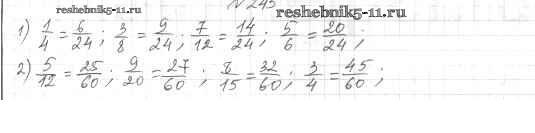 № 245
reshebnik5-11.ru reshebnik5-11.ru
1) 1/4 = 6/24; 3/8 = 9/24; 7/12 = 14/24; 5/6 = 20/24;
2) 5/12 = 25/60; 9/20 = 27/60; 8/15 = 32/60; 3/4 = 45/60;